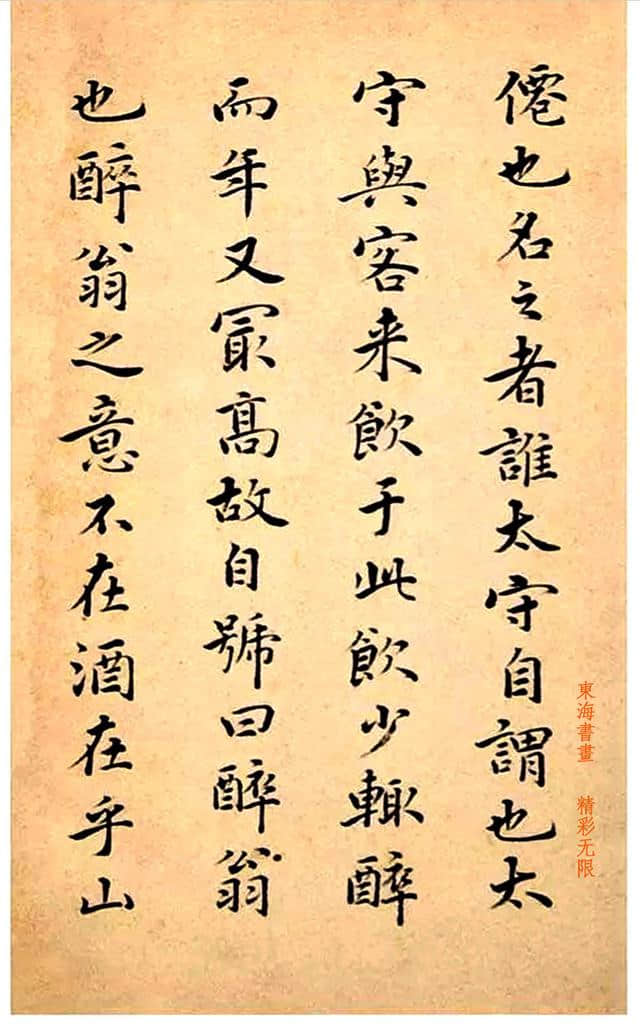 僊也名之者誰太守自謂也太
守與客来飲于此飲少輙醉
而年又冣髙故自號曰醉翁
也醉翁之意不在酒在乎山
東海書畫 精彩无限